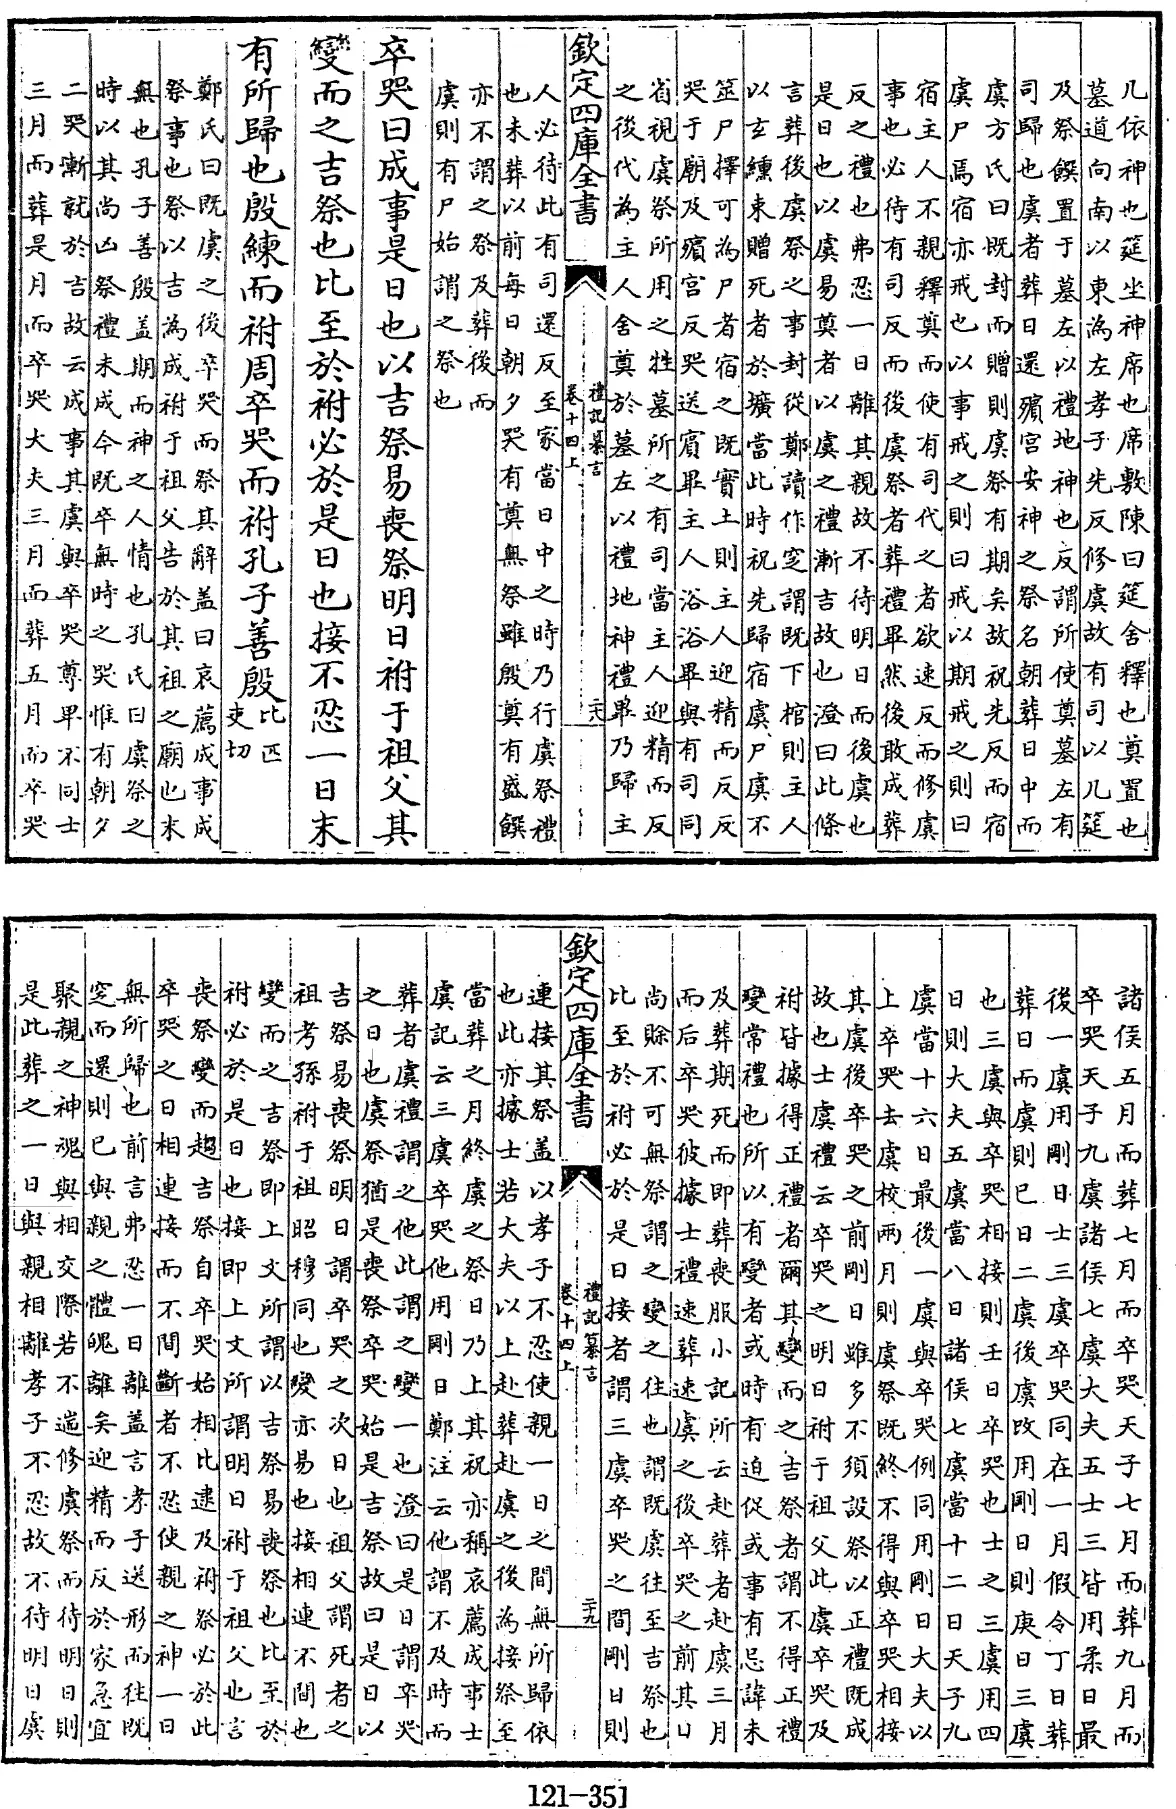 几依神也筵坐神席也席敷陳曰筵舍釋也奠置也
墓道向南以東為左孝子先反修虞故有司以几筵
及祭饌置于墓左以禮地神也反謂所使奠墓左有
司歸也虞者葬日還殯宮安神之祭名朝葬日中而
虞方氏曰既封而贈則虞祭有期矣故祝先反而宿
虞尸焉宿亦戒也以事戒之則曰戒以期戒之則曰
宿主人不親釋奠而使有司代之者欲速反而修虞
事也必待有司反而後虞祭者葬禮畢然後敢成葬
反之禮也弗忍一日離其親故不待明日而後虞也
是日也以虞易奠者以虞之禮漸吉故也澄曰此條
言葬後虞祭之事封從鄭讀作窆謂既下棺則主人
以玄纁束贈死者於壙當此時祝先歸宿虞尸虞不
筮尸擇可為尸者宿之既實土則主人迎精而反反
哭于廟及殯宮反哭送賓畢主人浴浴畢與有司同
省視虞祭所用之牲墓所之有司當主人迎精而反
之後代為主人舍奠於墓左以禮地神禮畢乃歸主
欽定四庫全書
禮記纂言
卷十四上
二十八
人必待此有司還反至家當日中之時乃行虞祭禮
也未葬以前每日朝夕哭有奠無祭雖殷奠有盛饌
亦不謂之祭及葬後而
虞則有尸始謂之祭也
卒哭曰成事是日也以吉祭易喪祭明日祔于祖父其
變而之吉祭也比至於祔必於是日也接不忍一日末
有所歸也殷練而祔周卒哭而祔孔子善殷比匹吏切
鄭氏曰既虞之後卒哭而祭其辭盖曰哀薦成事成
祭事也祭以吉為成祔于祖父告於其祖之廟也末
無也孔子善殷盖期而神之人情也孔氏曰虞祭之
時以其尚凶祭禮未成今既卒無時之哭惟有朝夕
二哭漸就於吉故云成事其虞與卒哭尊卑不同士
三月而葬是月而卒哭大夫三月而葬五月而卒哭
諸侯五月而葬七月而卒哭天子七月而葬九月而
卒哭天子九虞諸侯七虞大夫五士三皆用柔日最
後一虞用剛日士三虞卒哭同在一月假令丁日葬
葬日而虞則巳日二虞後虞改用剛日則庚日三虞
也三虞與卒哭相接則壬日卒哭也士之三虞用四
日則大夫五虞當八日諸侯七虞當十二日天子九
虞當十六日最後一虞與卒哭例同用剛日大夫以
上卒哭去虞校兩月則虞祭既終不得與卒哭相接
其虞後卒哭之前剛日雖多不須設祭以正禮既成
故也士虞禮云卒哭之明日祔于祖父此虞卒哭及
祔皆據得正禮者爾其變而之吉祭者謂不得正禮
變常禮也所以有變者或時有迫促或事有忌諱未
及葬期死而即葬喪服小記所云赴葬者赴虞三月
而后卒哭彼據士禮速葬速虞之後卒哭之前其日
尚賖不可無祭謂之變之往也謂既虞往至吉祭也
比至於祔必於是日接者謂三虞卒哭之間剛日則
欽定四庫全書
禮記纂言
卷十四上
二十九
連接其祭盖以孝子不忍使親一日之間無所歸依
也此亦據士若大夫以上赴葬赴虞之後為接祭至
當葬之月終虞之祭日乃上其祝亦稱哀薦成事士
虞記云三虞卒哭他用剛日鄭注云他謂不及時而
葬者虞禮謂之他此謂之變一也澄曰是日謂卒哭
之日也虞祭猶是喪祭卒哭始是吉祭故曰是日以
吉祭易喪祭明日謂卒哭之次日也祖父謂死者之
祖考孫祔于祖昭穆同也變亦易也接相連不間也
變而之吉祭即上文所謂以吉祭易喪祭也比至於
祔必於是日也接即上文所謂明日祔于祖父也言
喪祭變而趨吉祭自卒哭始相比逮及祔祭必於此
卒哭之日相連接而不間斷者不忍使親之神一日
無所歸也前言弗忍一日離盖言孝子送形而往既
窆而還則已與親之體魄離矣迎精而反於家急宜
聚親之神魂與相交際若不遄修虞祭而待明日則
是此葬之一日與親相離孝子不忍故不待明日虞
121-351